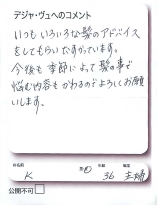 デジャ・ヴュへのコメント
いつもいろいろな髪のアドバイス
をしてもらいたすかっています。
今後も季節によって髪の事で
悩む内容もかわるのでよろしくお願
いします。
お名前
K
年齢
36
職業
主婦
公開不可